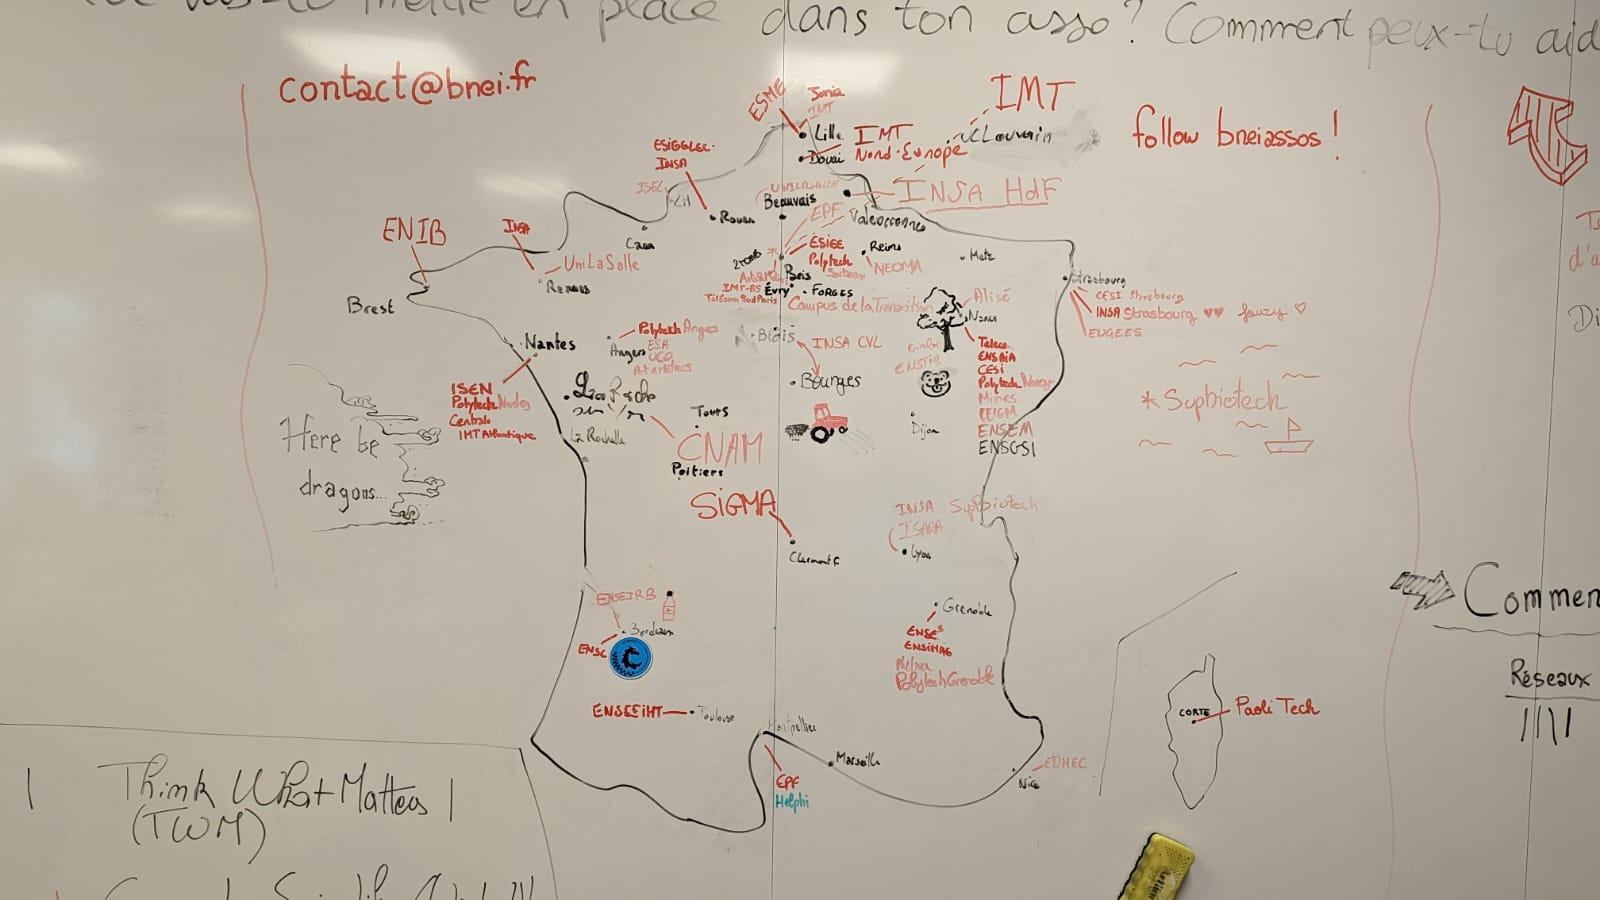 en place dans ton asso? Comment peux-tu aid
contact@bnei.fr
ESME
IMT
IMT
Lille
IMT
UCLouvain
follow bneiassos!
Douai
Nord-Europe
ESIGELEC
INSA
UNILASALLE
Beauvais
INSA HdF
Rouen
EPF
Valenciennes
ENIB
INSA
Caen
ESIEE
Reims
Metz
UniLaSalle
Polytech
Sorbonne
NEOMA
Paris
Strasbourg
Rennes
IMT-BS
Évry
FORGES
Alisé
CESI Strasbourg
Brest
Télécom SudParis
Campus de la Transition
INSA Strasbourg ♥♥
♡
ENGEES
Nantes
Polytech Angers
Blois
INSA CVL
Angers
ESA
UCO
ENSTIB
Telecom
ENSAIA
CESI
Polytech Nancy
Mines
EEIGM
ENSEM
ENSGSI
Bourges
ISEN
Polytech Nantes
Centrale
IMT Atlantique
*Supbiotech
Tours
Dijon
Here be
dragons...
La Rochelle
CNAM
Poitiers
SIGMA
INSA Supbiotech
ISARA
Lyon
Clermont F
ENSEIRB
Bordeaux
ENSC
Grenoble
ENSE³
ENSIMAG
Phelma
Polytech Grenoble
ENSEEIHT
Toulouse
Montpellier
CORTE
Paoli Tech
Marseille
EDHEC
Nice
EPF
Helphi
Commen
Réseaux
Think What Matters
(TWM)